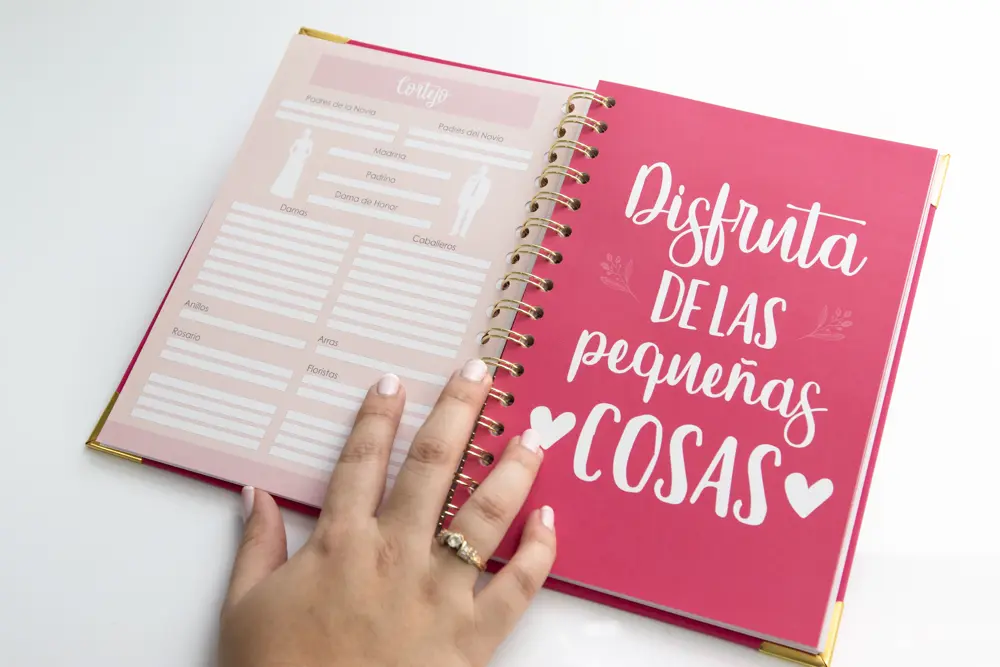 Cortejo
Padres de la Novia
Padres del Novio
Madrina
Padrino
Dama de Honor
Damas
Caballeros
Anillos
Arras
Rosario
Floristas
Disfruta
DE LAS
pequeñas
COSAS